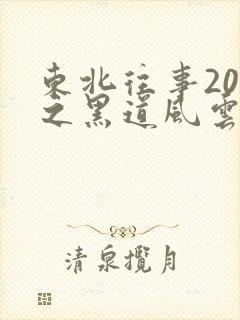 東北往事20
之黑道風雲
清泉攬月